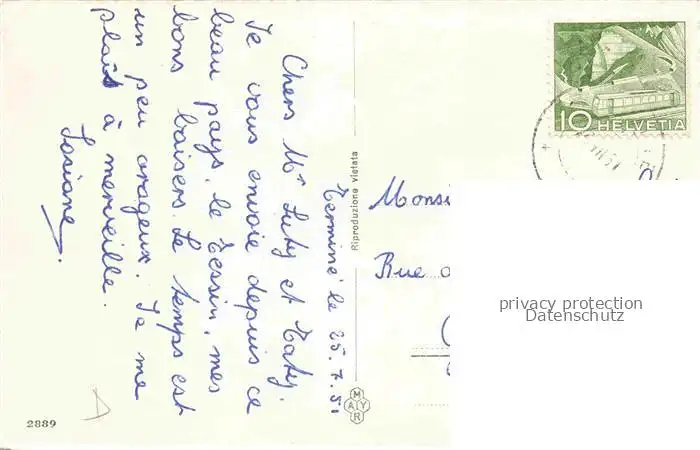 Chers Mr Luty et Taty.
Je vous envoie depuis ce
beau pays, le Tessin, mes
bons baisers. Le temps est
un peu orageux. Je me
plaîs à merveille.
Josiane.
Terminé le 25.7.51
Riproduzione vietata
MAYR
2889
10 HELVETIA
Monsi
Rue
privacy protection
Datenschutz